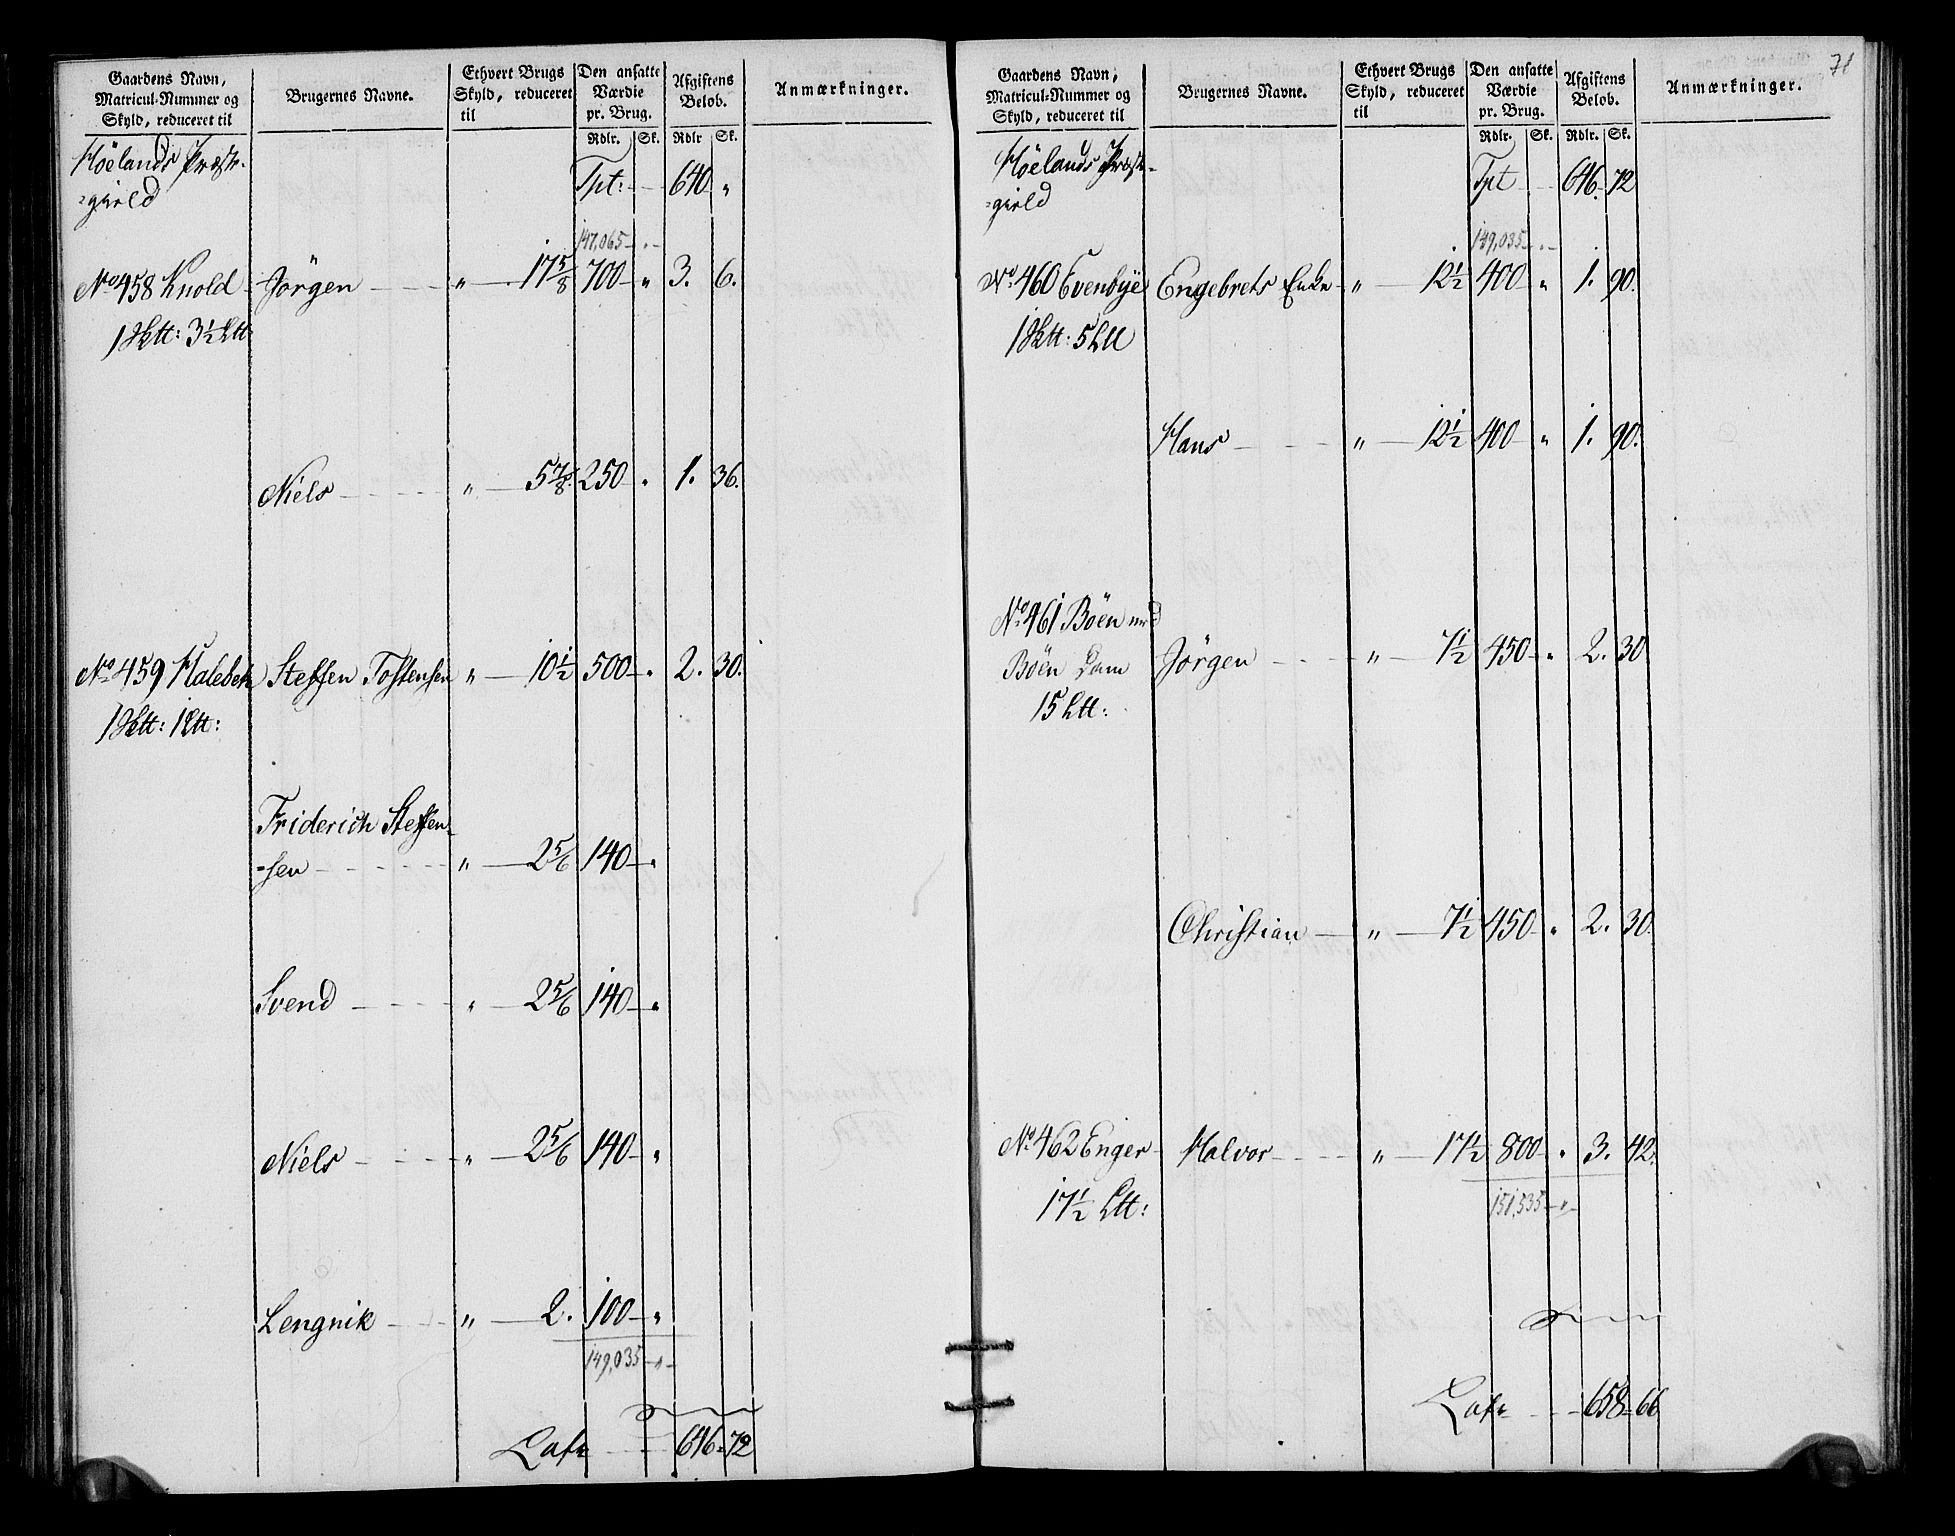 Gaardens Navn, Matricul-Nummer og Skyld, reduceret til | Brugernes Navne. | Ethvert Brugs Skyld, reduceret til | Den ansatte Værdie pr. Brug. Rdlr. Sk. | Afgiftens Beløb. Rdlr Sk. | Anmærkninger.
Höelands Præste-
=gield Tpt: 640 "
147,065 - " -
No 458 Knold Jörgen " 17 5/8 700 " 3. 6.
1 Sktt: 3 1/2 Ltt
Niels " 5 7/8 250 " 1. 36.
No 459 Halebek Steffen Tostensen " 10 1/2 500 " 2. 30.
1 Sktt: 1 Ltt:
Friderich Steffen-
=sen " 2 5/6 140 "
Svend " 2 5/6 140 "
Niels " 2 5/6 140 "
Lengnik " 2. 100 "
149,035 - " -
Late 646 72
71
Gaardens Navn, Matricul-Nummer og Skyld, reduceret til | Brugernes Navne. | Ethvert Brugs Skyld, reduceret til | Den ansatte Værdie pr. Brug. Rdlr. Sk. | Afgiftens Beløb. Rdlr. Sk. | Anmærkninger.
Höelands Præste-
=gield Tpt 646 72
149,035 - " -
No 460 Evenbye Engebrets Enke " 12 1/2 400 " 1. 90.
1 Sktt: 5 Ltt
Hans " 12 1/2 400 " 1. 90.
No 461 Böen med
Böen Dam Jörgen " 7 1/2 450 " 2. 30
15 Ltt:
Christian " 7 1/2 450 " 2. 30.
No 462 Enger Halvor " 17 1/2 800 " 3. 42.
17 1/2 Ltt:
151,535 - " -
Late 658 66